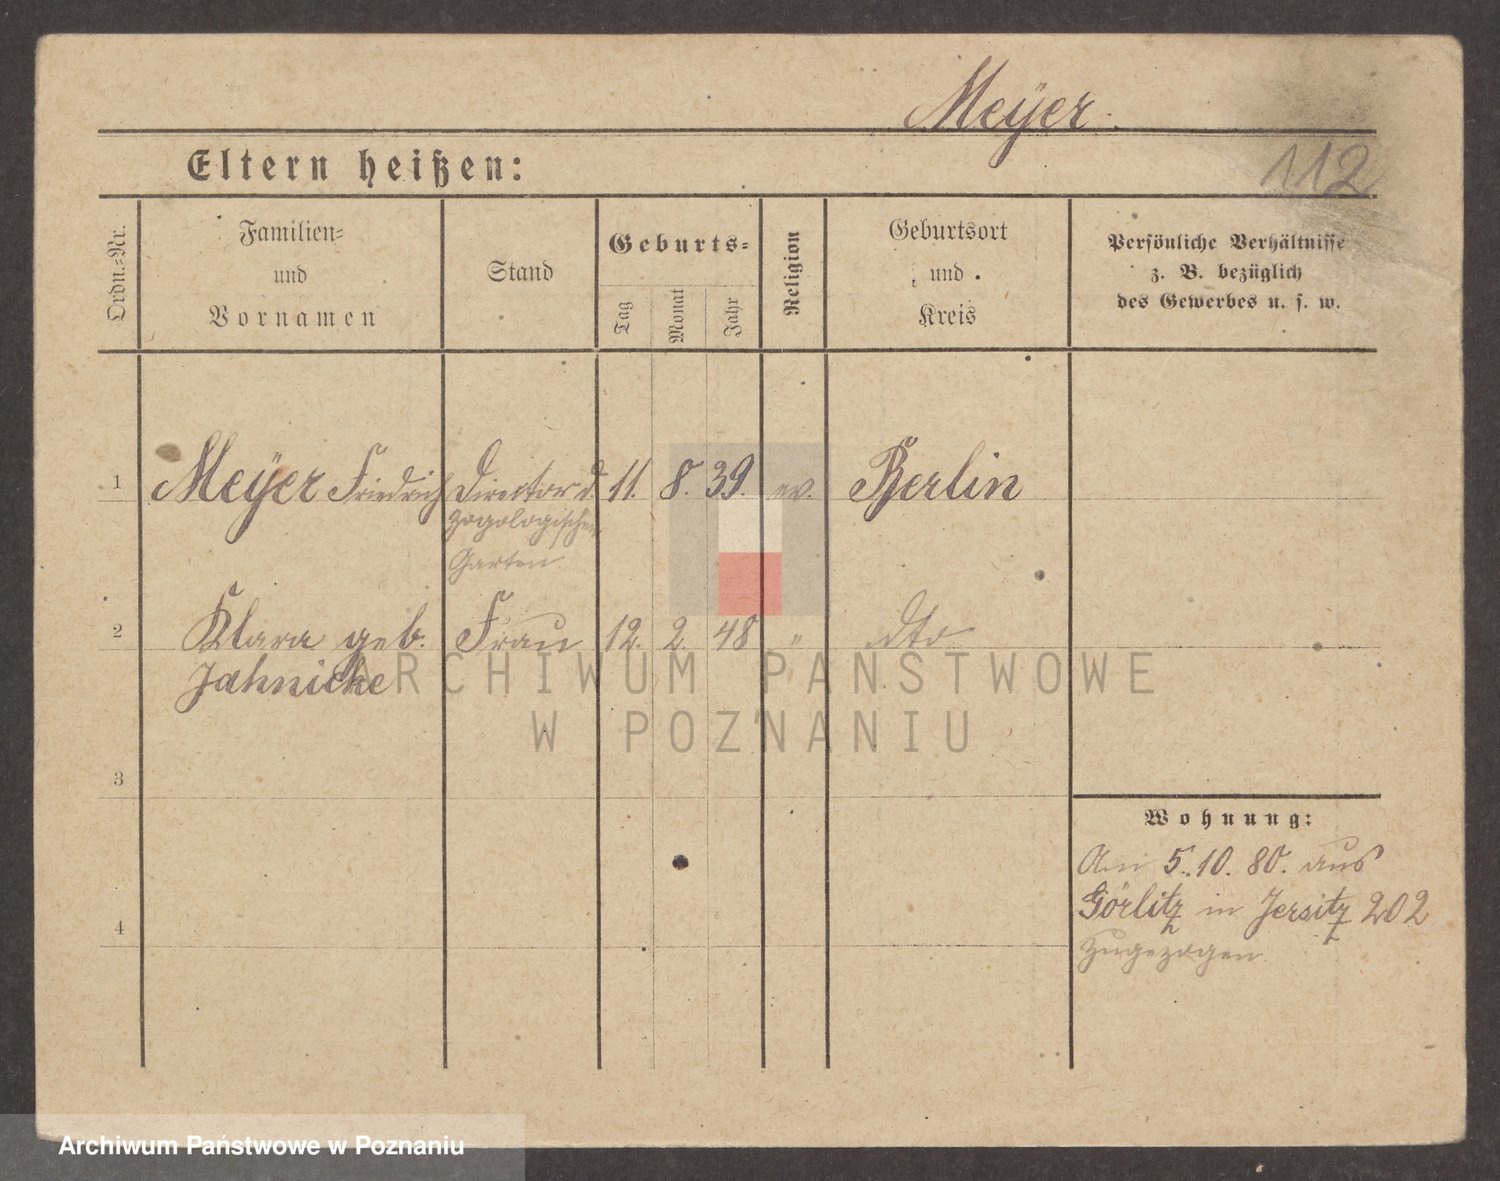 Meÿer.
112
Eltern heißen:
Ordn.-Nr.
Familien-
und
Vornamen
Stand
Geburts-
Tag
Monat
Jahr
Religion
Geburtsort
und
Kreis
Persönliche Verhältnisse
z. B. bezüglich
des Gewerbes u. s. w.
1 Meÿer Friedrich Director d. 11. 8. 39. ev. Berlin
zoologischen
Garten
2 Klara geb. Frau 12. 2. 48 " dto
Jahnicke
ARCHIWUM PAŃSTWOWE
W POZNANIU
3
Wohnung:
Am 5.10.80. aus
Görlitz in Jersitz 202
zugezogen.
4
Archiwum Państwowe w Poznaniu